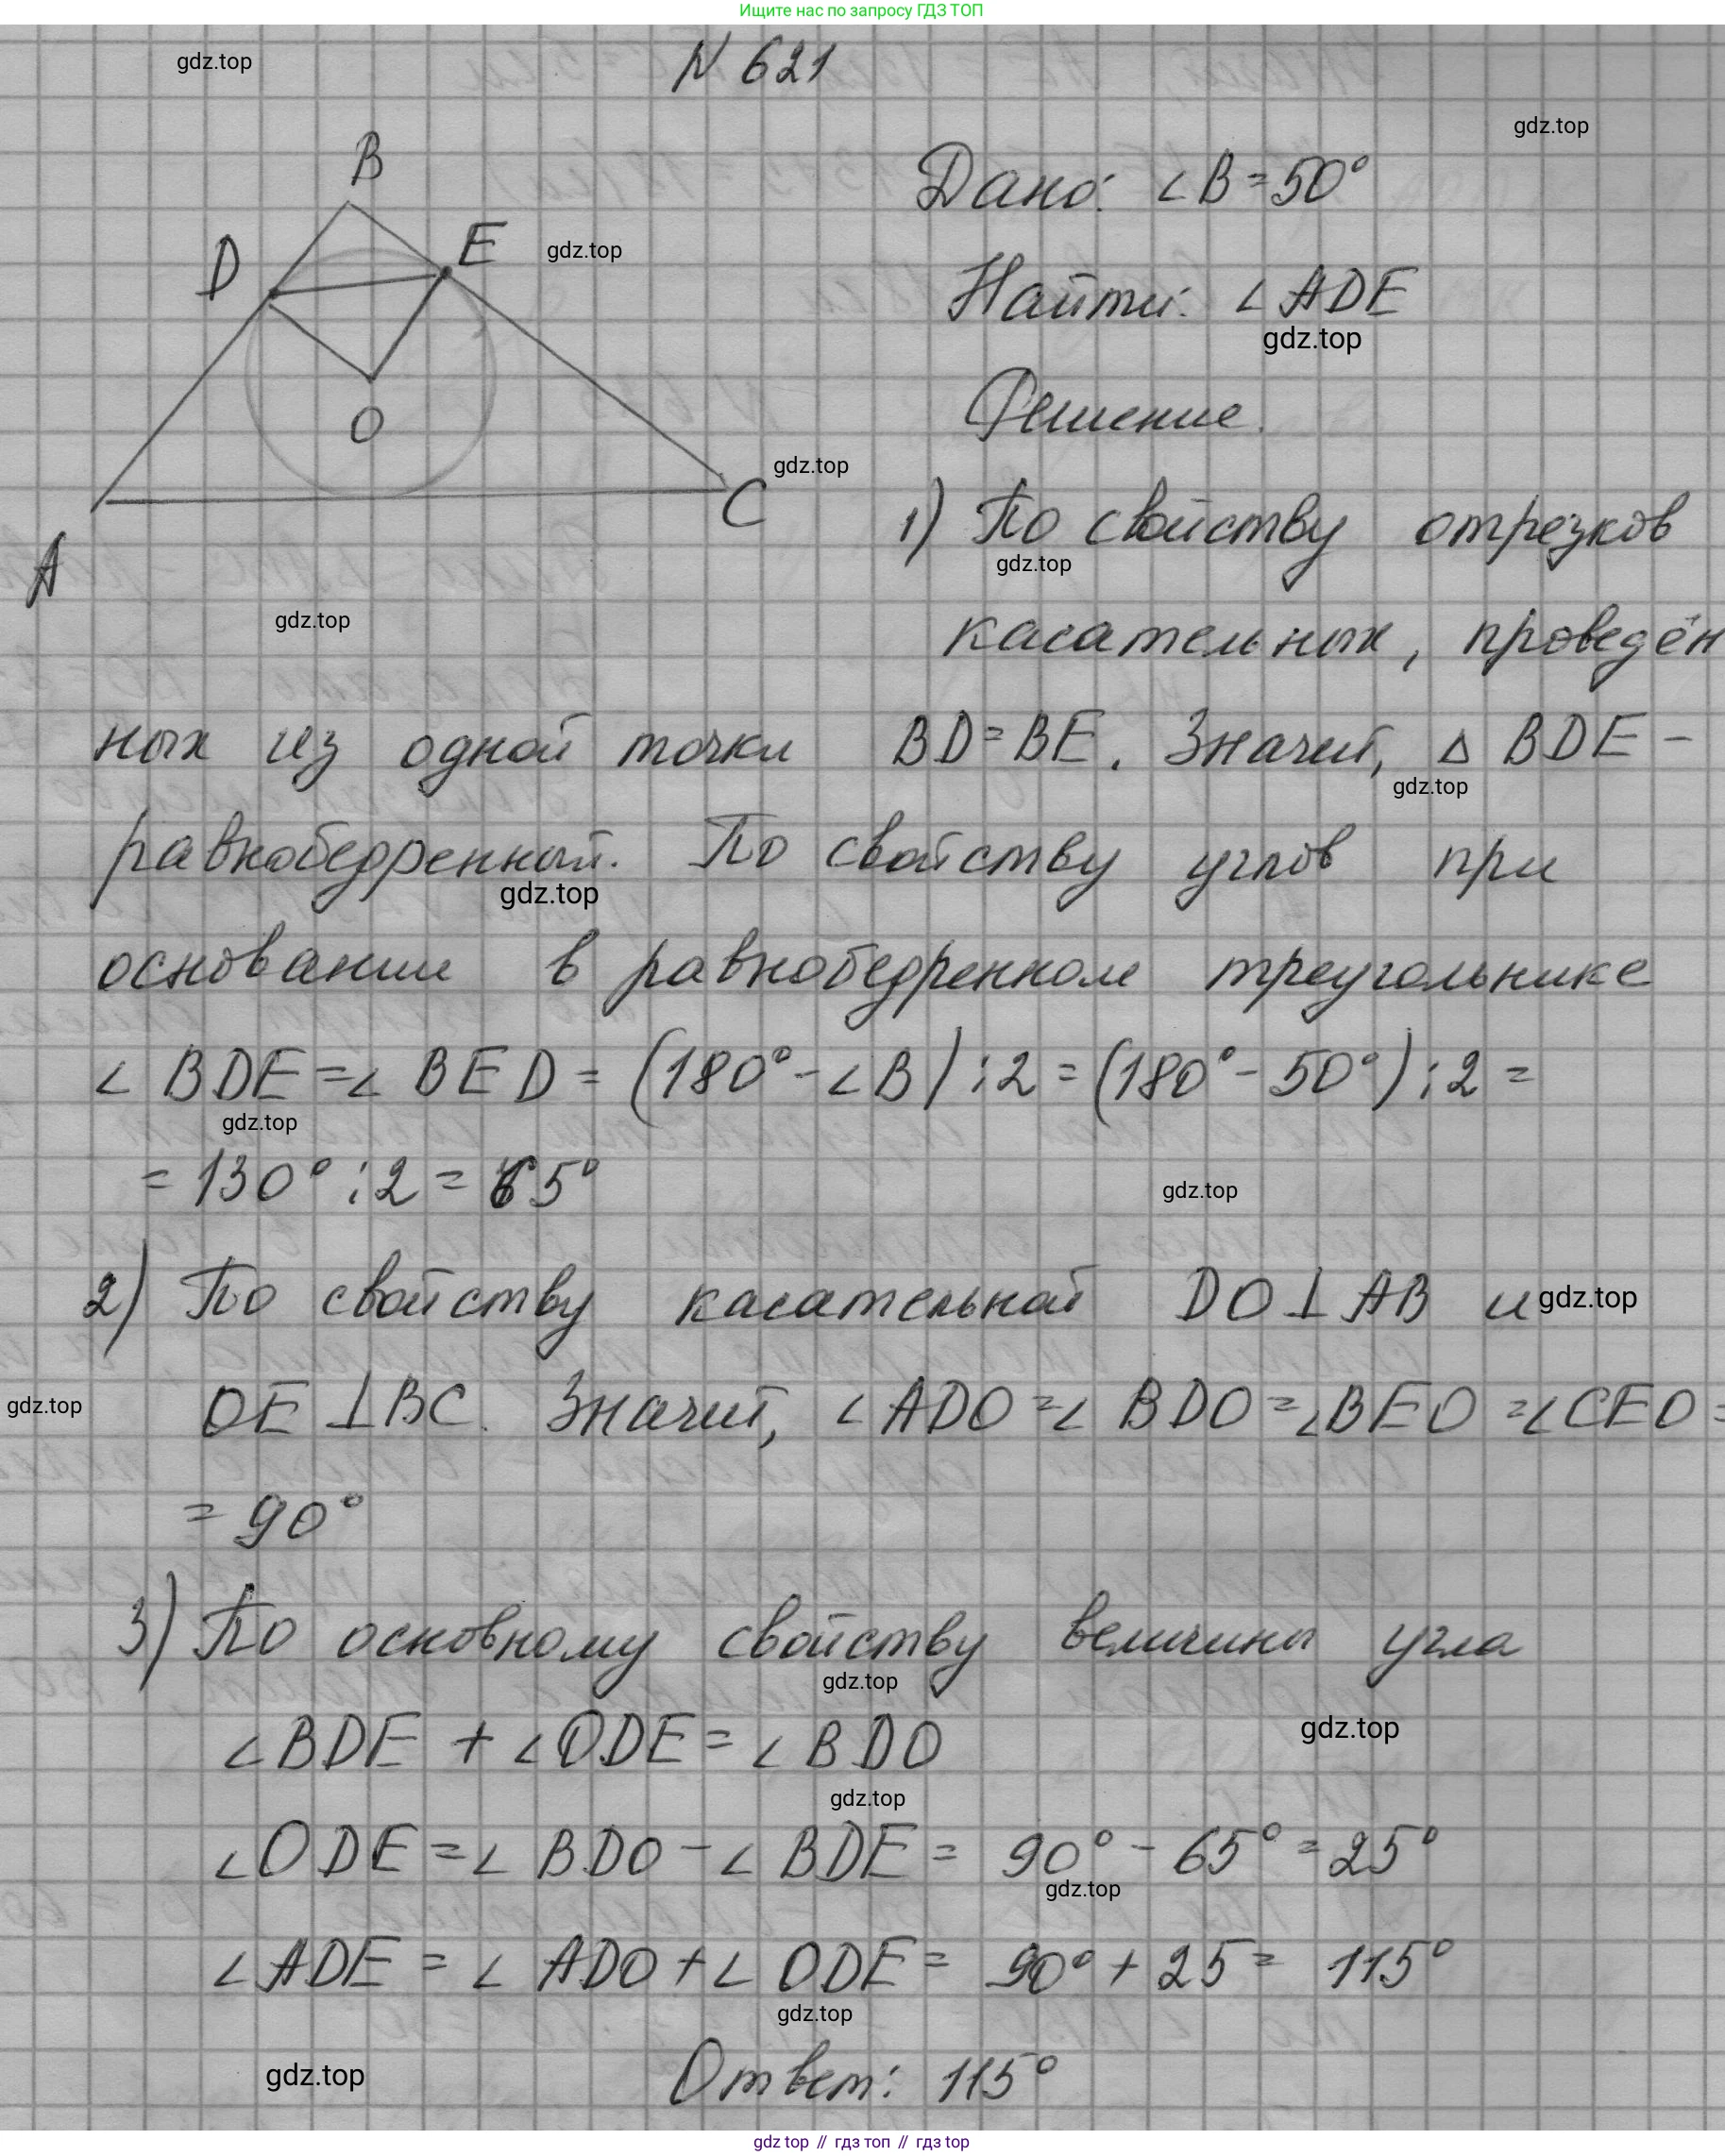 Ищите нас по запросу ГДЗ ТОП
N 621
gdz.top
gdz.top
B
Дано: ∠B=50°
D
E
gdz.top
Найти: ∠ADE
gdz.top
Решение.
O
gdz.top
C
A
1) По свойству отрезков
gdz.top
gdz.top
касательных, проведён
ных из одной точки BD=BE. Значит, △ BDE -
gdz.top
равнобедренный. По свойству углов при
gdz.top
основании в равнобедренном треугольнике
∠ BDE=∠ BED = (180°-∠B):2=(180°-50°):2=
gdz.top
=130°:2=65°
gdz.top
2) По свойству касательной DO⊥AB и
gdz.top
gdz.top
OE⊥BC. Значит, ∠ADO=∠ BDO=∠BEO=∠CEO=
= 90°
3) По основному свойству величины угла
gdz.top
∠BDE + ∠ODE = ∠BDO
gdz.top
gdz.top
∠ODE=∠ BDO-∠ BDE= 90°-65°=25°
gdz.top
∠ADE = ∠ ADO+∠ ODE= 90°+25= 115°
gdz.top
gdz.top
Ответ: 115°
gdz top // гдз топ // гдз top